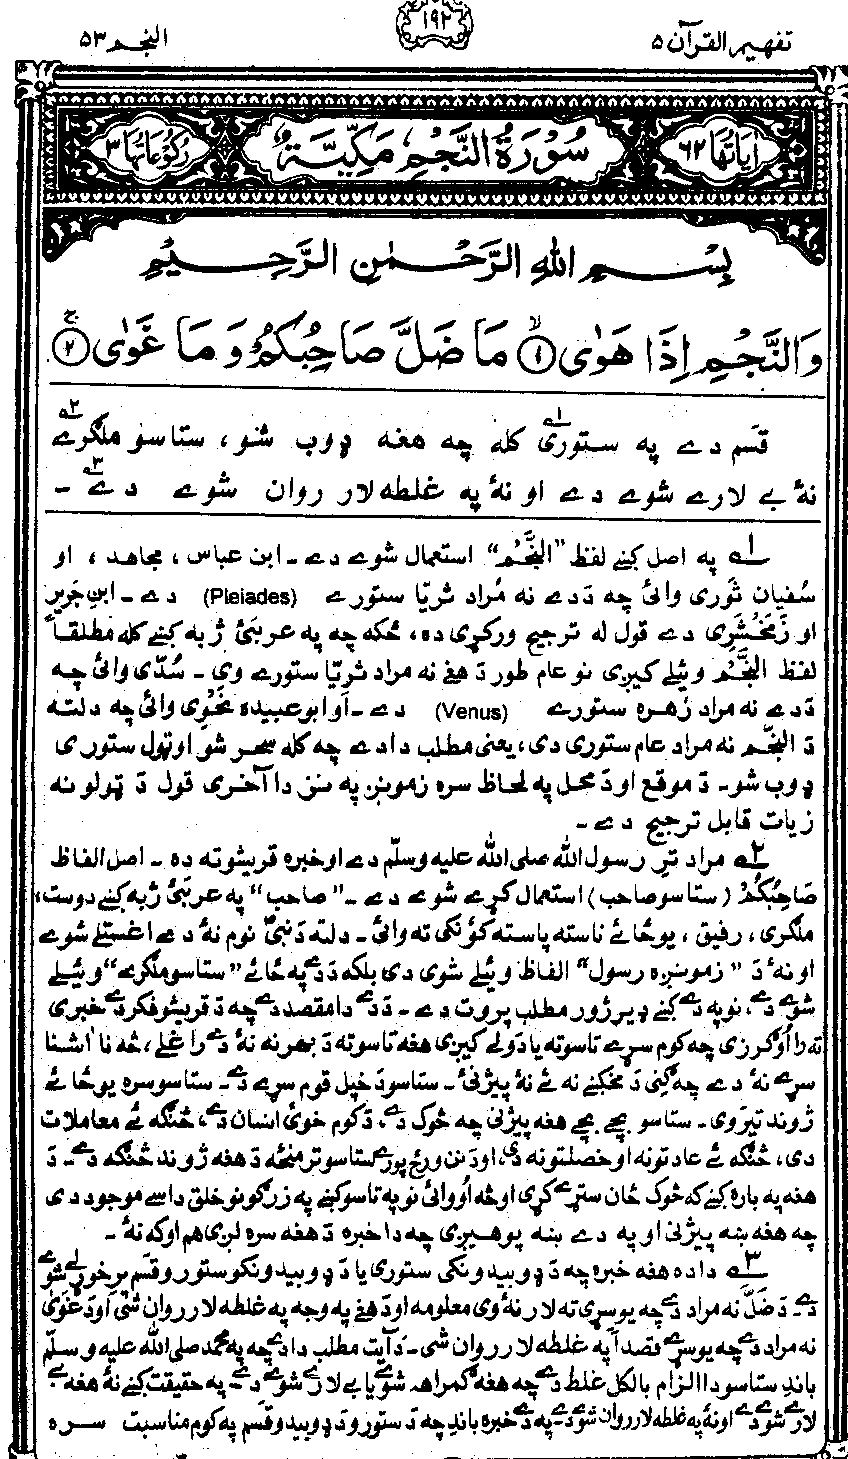 تفهیم القرآن ۵
۱۹۲
النجم ۵۳
اٰیَاتُهَا ۶۲
سُوْرَةُ النَّجْمِ مَكِّیَّةٌ
رُكُوْعَاتُهَا ۳
بِسْمِ اللهِ الرَّحْمٰنِ الرَّحِیْمِ
وَالنَّجْمِ اِذَا هَوٰی ۱ مَا ضَلَّ صَاحِبُكُمْ وَمَا غَوٰی ۲
قسم دے په ستوری ۱ کله چه هغه ډوب شو، ستاسو ملګرے ۲
نۀ بے لارے شوے دے او نۀ په غلطه لار روان شوے دے ۳ ـ
۱ په اصل کښے لفظ "النَّجْم" استعمال شوے دے ـ ابن عباس، مجاهد، او
سُفیان ثَوری وائی چه دَدے نه مُراد ثریّا ستورے (Pleiades) دے ـ ابنِ جریر
او زَمَخْشَرِی دے قول له ترجیح ورکړی ده، ځکه چه په عربیٔ ژبه کښے کله مطلقاً
لفظ النَّجْم وئیلے کیږی نو عام طور دَ هغے نه مراد ثریّا ستورے وی ـ سُدّی وائی چه
دَدے نه مراد زُهره ستورے (Venus) دے ـ او ابوعبیده نحوی وائی چه دلته
دَ النَّجْم نه مراد عام ستوری دی، یعنی مطلب دا دے چه کله سحر شو او ټول ستوری
ډوب شو ـ دَ موقع او دَ محل په لحاظ سره زمونږ په نزد دا آخری قول دَ ټولو نه
زیات قابل ترجیح دے ـ
۲ مراد ترے رسول الله صلی الله علیه وسلّم دے او خبره قریشو ته ده ـ اصل الفاظ
صَاحِبُكُمْ (ستاسو صاحب) استعمال کړے شوے دے ـ "صاحب" په عربیٔ ژبه کښے دوست،
ملګری، رفیق، یوځائے ناسته پاسته کوونکی ته وائی ـ دلته دَ نبیؐ نوم نۀ دے اغستلے شوے
او نۀ دَ "زمونږه رسول" الفاظ وئیلے شوی دی بلکه دَدے په ځائے "ستاسو ملګرے" وئیلے
شوے دے، نو په دے کښے ډیر ژور مطلب پروت دے ـ دَدے دا مقصد دے چه دَ قریشو فکر دے خبری
ته را اوګرزی چه کوم سړے تاسو ته یادولے کیږی هغه تاسو ته دَ بهر نه نۀ دے راغلے، څه نا اشنا
سړے نۀ دے چه ګنی دَ مخکښے نه ئے نۀ پیژنیٔ ـ ستاسو دَ خپل قوم سړے دے ـ ستاسو سره یوځائے
ژوند تیروی ـ ستاسو بچے بچے هغه پیژنی چه څوک دے، دَ کوم خویٔ انسان دے، څنګه ئے معاملات
دی، څنګه ئے عادتونه او خصلتونه دی، او دَ نن ورځ پورے ستاسو ترمنځه دَ هغه ژوند څنګه دے ـ دَ
هغه په باره کښے که څوک ځان سترے کړی او څه اووائی نو په تاسو کښے په زرګونو خلق داسے موجود دی
چه هغه ښه پیژنی او په دے ښه پوهیږی چه دا خبره دَ هغه سره لږی هم او که نۀ ـ
۳ دا ده هغه خبره چه دَ ډوبیدونکی ستوری یا دَ ډوبیدونکو ستورو قسم پرے خوړلے شوے
دے ـ دَ ضَلَّ نه مراد دے چه یو سړی ته لار نۀ وی معلومه او دَ هغے په وجه په غلطه لار روان شی او دَ غَوٰی
نه مراد دے چه یو سړے قصداً په غلطه لار روان شی ـ دَ آیت مطلب دا دے چه په محمد صلی الله علیه وسلّم
باندے ستاسو دا الزام بالکل غلط دے چه هغه ګمراهه شوے یا بے لارے شوے دے ـ په حقیقت کښے نۀ هغه بے
لارے شوے دے او نۀ په غلطه لار روان شوے دے ـ په دے خبره باندے چه دَ ستورو دَ ډوبیدو قسم په کوم مناسبت سره